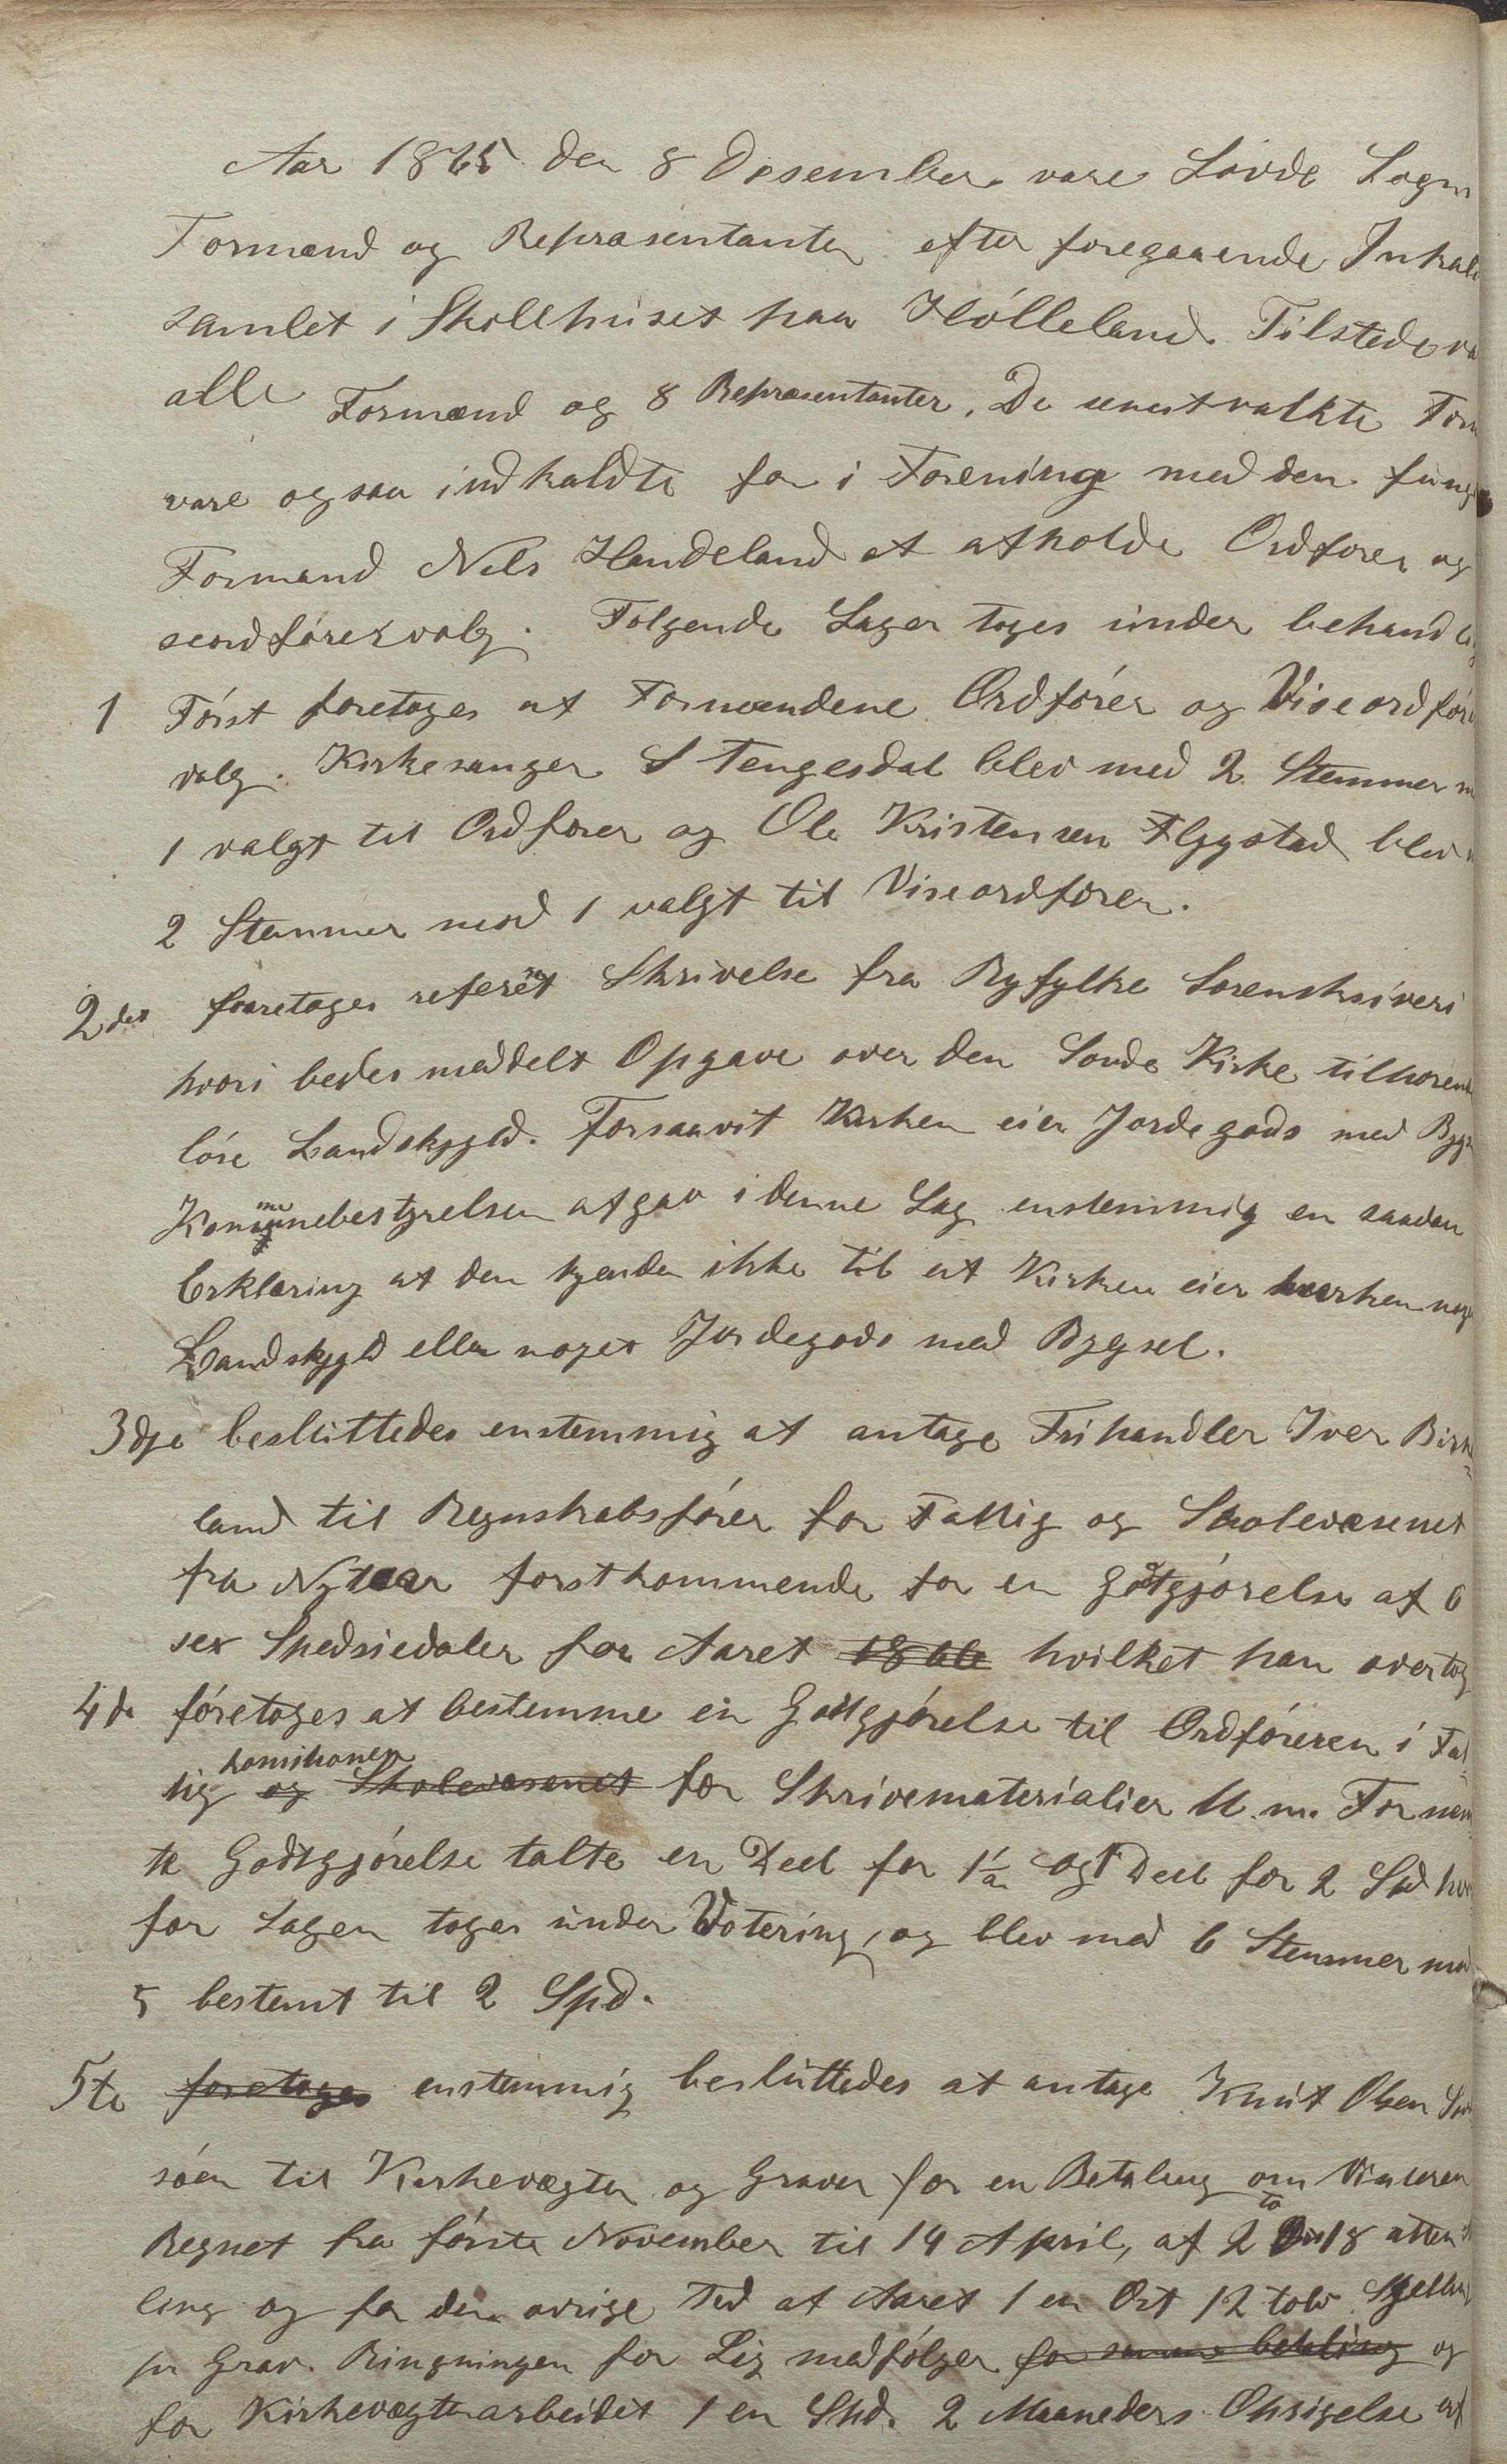 Aar 1865 den 8 Desember vare Søvde Sogns
Formænd og Repræsentanter efter foregaaende Inkal
samlet i Skolehuset paa Hølleland. Tilstede va
alle Formænd og 8 Repræsentanter. De senestvalkte Form
vare ogsaa indkaldte for i Forening med den fung
Formand Nels Handeland at afholde Ordfører og
seordførervalg. Følgende Sager toges under behandli
1 Først foretoges af Formændene Ordfører og Viseordføre
valg. Kirkesanger S Tengesdal blev med 2 Stemmer m
1 valgt til Ordfører og Ole Kristensen Flygstad blev
2 Stemmer mod 1 valgt til Viseordfører.
2det foretoges referert Skrivelse fra Ryfylke Sorenskriveri
hvori bedes meddelt Opgave over den Sovde Kirke tilhørend
løse Landskyld. Forsaavit Kirken eier Jordegods med Bygs
Kommunebestyrelsen afgav i denne Sag enstemmig en saadan
Erklæring at den kjender ikke til at Kirken eier hverken noge
Landskyld eller noget Jordegods med Bygsel.
3dje besluttedes enstemmig at antage Frihandler Iver Birke=
land til Regnskabsfører for Fattig og Skolevæsenet
fra Nytaar førstkommende for en Godtgjørelse af 6
sex Spedsiedaler for Aaret 1866 hvilket han overtog
4de foretoges at bestemme en Godtgjørelse til Ordføreren i Fat=
tig komisionen og Skolevæsenet for Skrivematerialier M. m. For nævn
te Godtgjørelse talte en Deel for 1 1/2 og 1 Deel for 2 Spd hvor
for Sagen toges under Votering, og blev med 6 Stemmer mod
5 bestemt til 2 Spd.
5te foretoges enstemmig besluttedes at antage Knut Olsen
søen til Kirkevægter og Graver for en Betaling om Vinteren
Regnet fra første November til 14 April, af 2 to Ort 18 atten
ling og for den øvrige Tid af Aaret 1 en Ort 12 tolv Skjelling
pr Grav. Ringningen for Lig medfølger for samme betaling og
for Kirkevægterarbeidet 1 en Spd. 2 Maaneders Opsigelse af